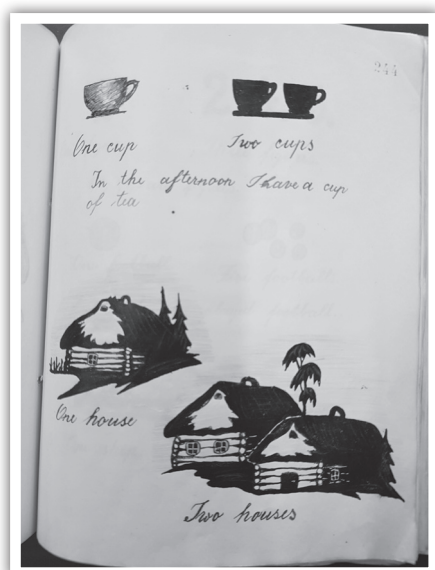 244
One cup
Two cups
In the afternoon I have a cup
of tea
One house
Two houses